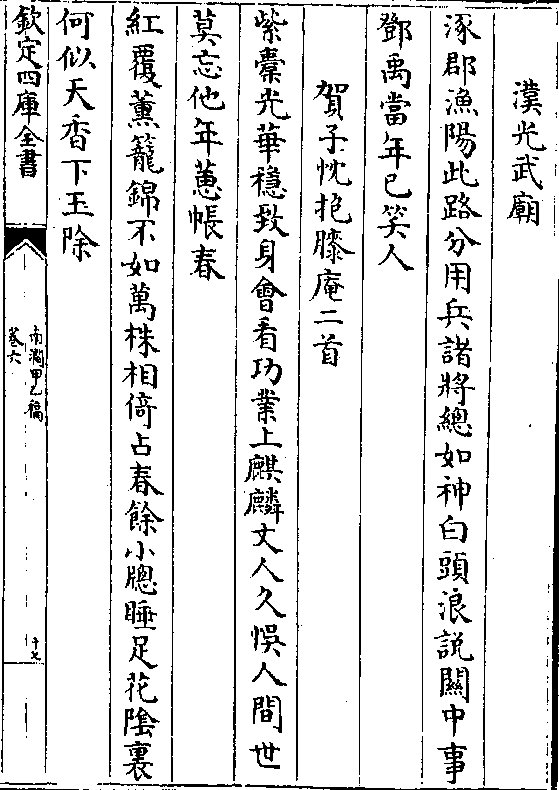 漢光武廟
涿郡漁陽此路分用兵諸將總如神白頭浪說關中事
鄧禹當年已笑人
賀子忱抱膝庵二首
紫橐光華穩致身會看功業上麒麟丈人久悞人間世
莫忘他年蕙帳春
紅覆薰籠錦不如萬株相倚占春餘小牕睡足花陰裏
何似天香下玉除
欽定四庫全書
南澗甲乙稿
卷六
十七